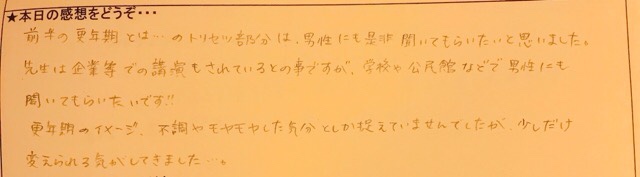 ★本日の感想をどうぞ・・・
前半の更年期とは…のトリセツ部分は、男性にも是非聞いてもらいたいと思いました。
先生は企業等での講演もされているとの事ですが、学校や公民館などで男性にも
聞いてもらいたいです!!
更年期のイメージ、不調やモヤモヤした気分としか捉えていませんでしたが、少しだけ
変えられる気がしてきました…。